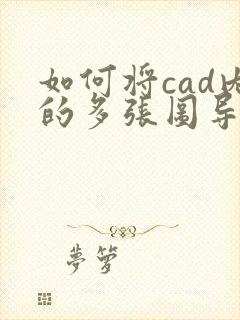 如何将cad内
的多张图导
夢箩